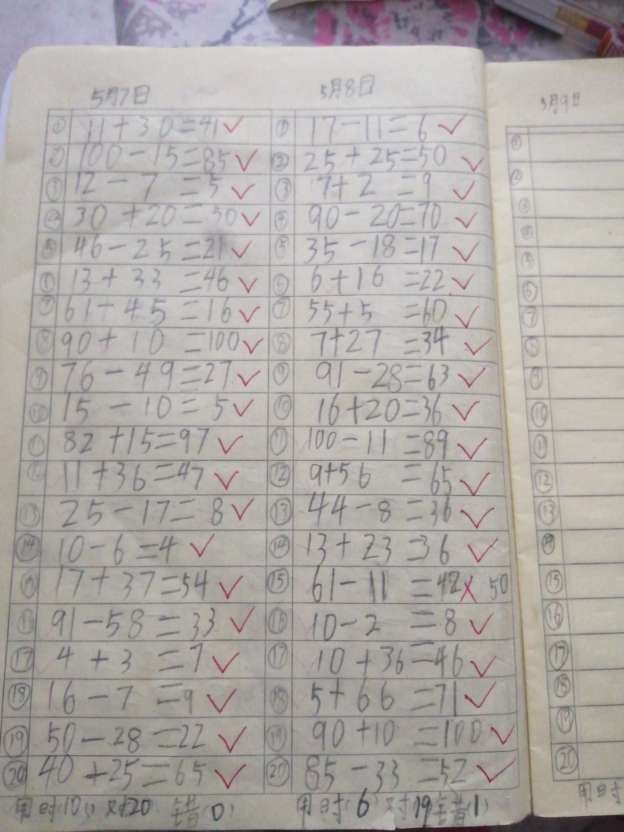 5月7日
① 11+30=41✓
② 100-15=85✓
③ 12-7=5✓
④ 30+20=50✓
⑤ 46-25=21✓
⑥ 13+33=46✓
⑦ 61-45=16✓
⑧ 90+10=100✓
⑨ 76-49=27✓
⑩ 15-10=5✓
⑪ 82+15=97✓
⑫ 11+36=47✓
⑬ 25-17=8✓
⑭ 10-6=4✓
⑮ 17+37=54✓
⑯ 91-58=33✓
⑰ 4+3=7✓
⑱ 16-7=9✓
⑲ 50-28=22✓
⑳ 40+25=65✓
用时(10) 对20 错(0)
5月8日
① 17-11=6✓
② 25+25=50✓
③ 7+2=9✓
④ 90-20=70✓
⑤ 35-18=17✓
⑥ 6+16=22✓
⑦ 55+5=60✓
⑧ 7+27=34✓
⑨ 91-28=63✓
⑩ 16+20=36✓
⑪ 100-11=89✓
⑫ 9+56=65✓
⑬ 44-8=36✓
⑭ 13+23=36✓
⑮ 61-11=42✗ 50
⑯ 10-2=8✓
⑰ 10+36=46✓
⑱ 5+66=71✓
⑲ 90+10=100✓
⑳ 85-33=52✓
用时(6) 对19 错(1)
5月9日
①
②
③
④
⑤
⑥
⑦
⑧
⑨
⑩
⑪
⑫
⑬
⑭
⑮
⑯
⑰
⑱
⑲
⑳
用时